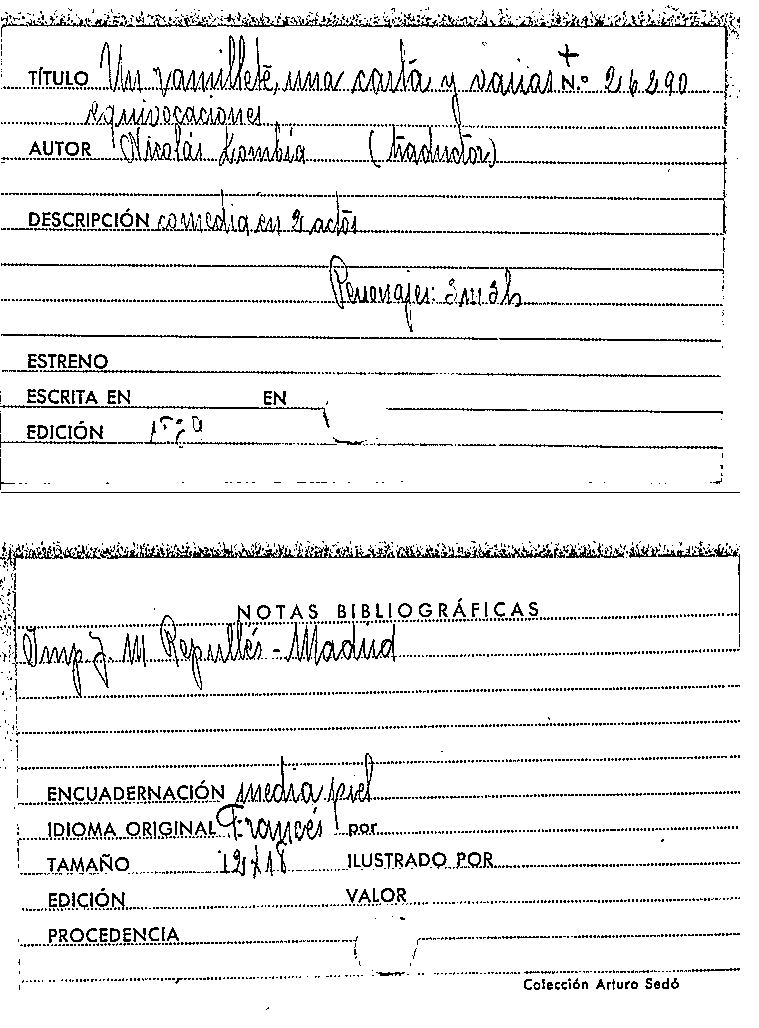 TÍTULO Un ramillete, una carta y varias N.º 26290
equivocaciones
AUTOR Nicolás Lombía (traductor)
DESCRIPCIÓN comedia en 2 actos
Personajes: 3m 3h
ESTRENO
ESCRITA EN EN
EDICIÓN
NOTAS BIBLIOGRÁFICAS
Imp J. M Repullés - Madrid
ENCUADERNACIÓN media piel
IDIOMA ORIGINAL Francés por
TAMAÑO 12x18 ILUSTRADO POR
EDICIÓN VALOR
PROCEDENCIA
Colección Arturo Sedó